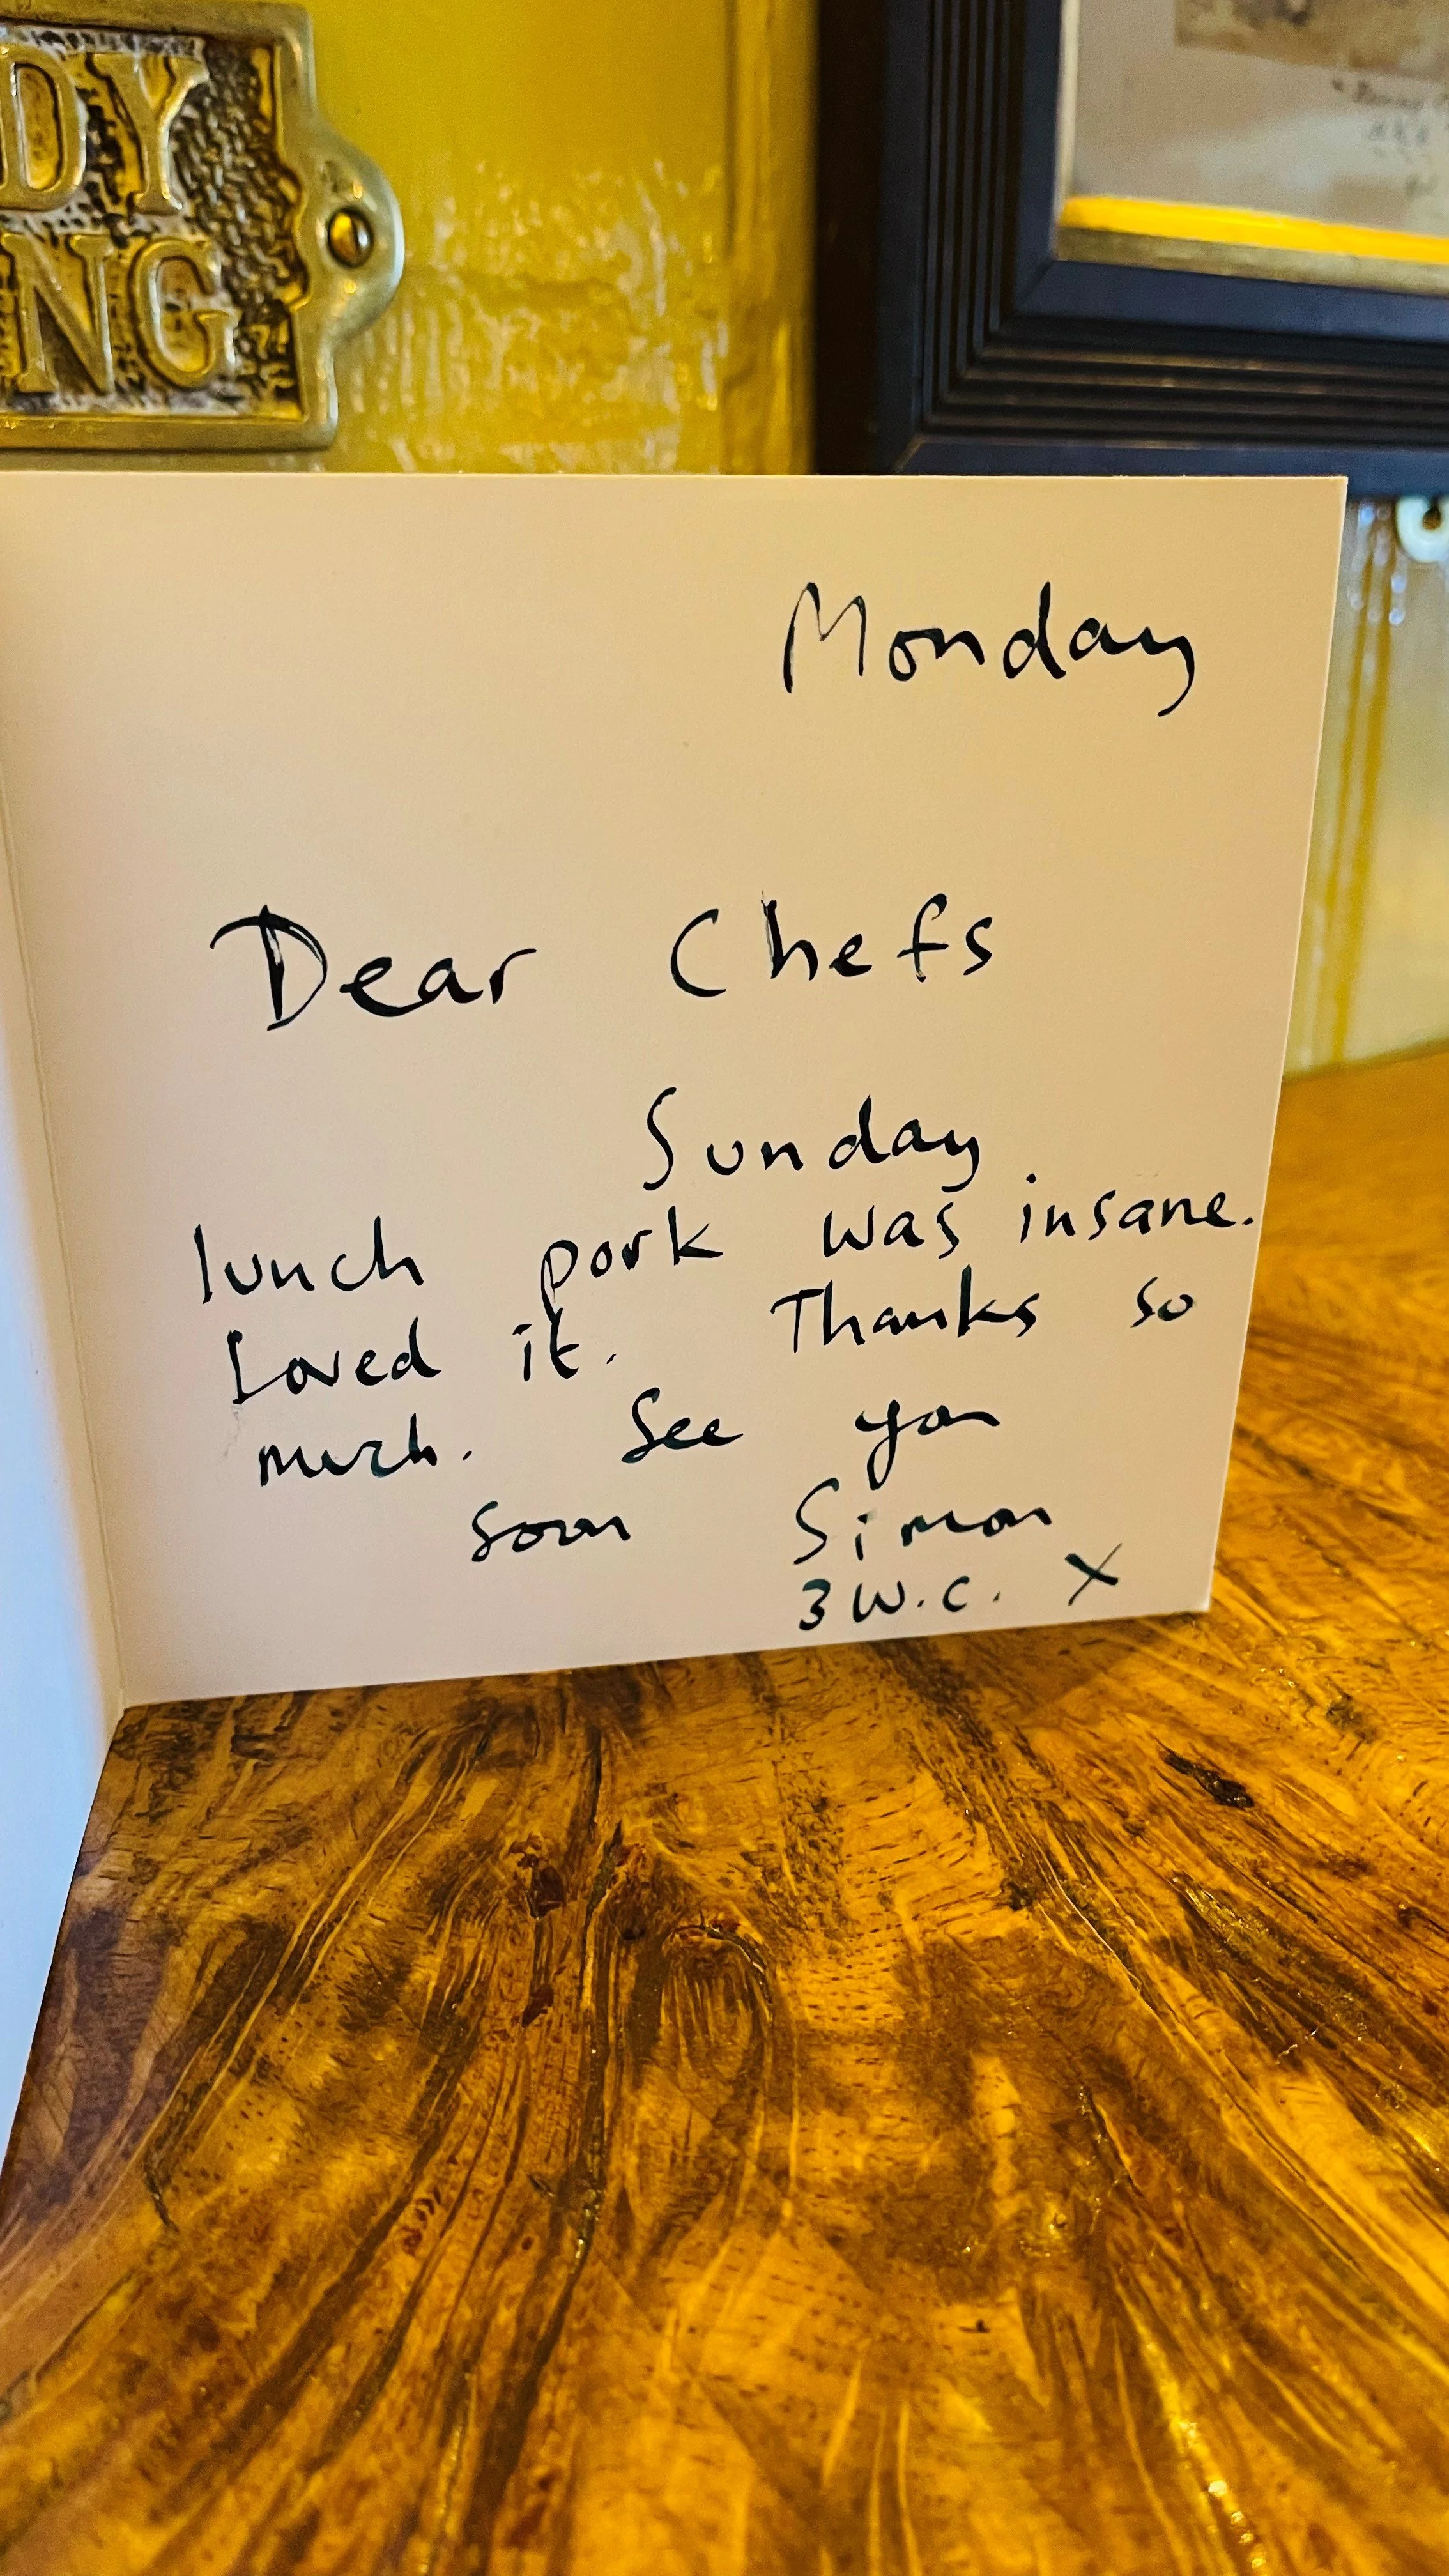 DY
NG
Monday
Dear Chefs
Sunday
lunch pork was insane.
Loved it. Thanks so
much. See you
soon Simon
3 W.C. X